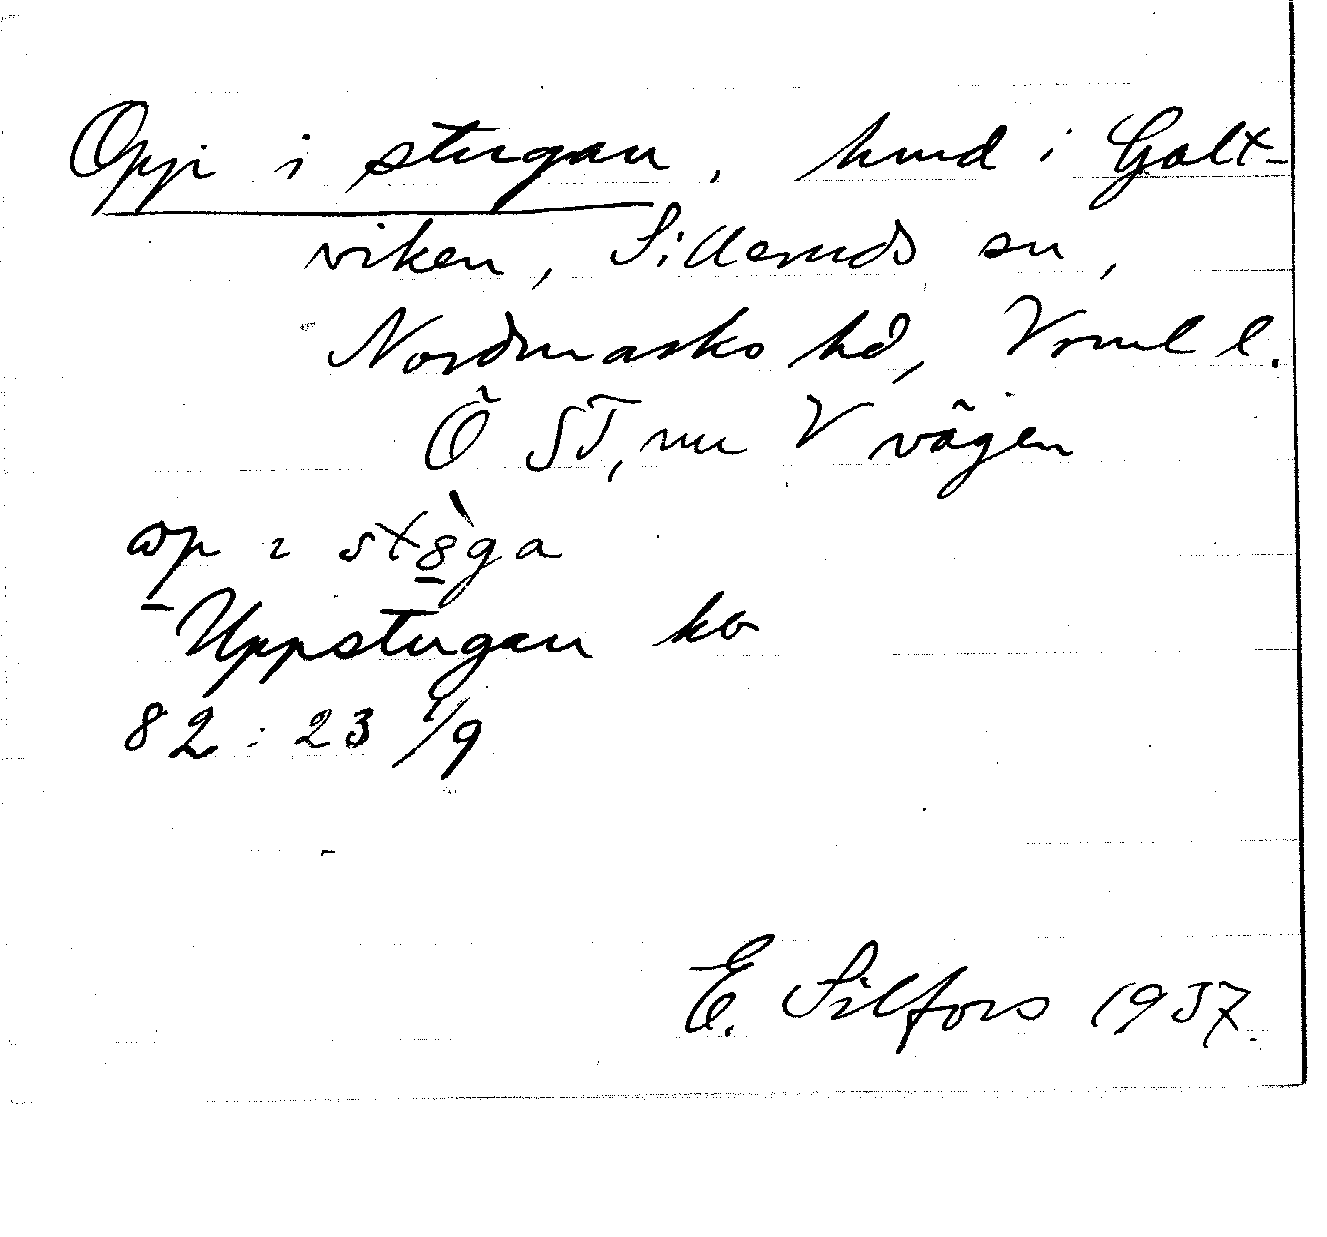 Oppi i stugan, hmd i Galt-
viken, Silleruds sn,
Nordmarks hd, Vrml l.
Ö ST, nu V vägen
op i st8̀ga
Uppstugan ka
82:23 1/9
E. Silfors 1937.